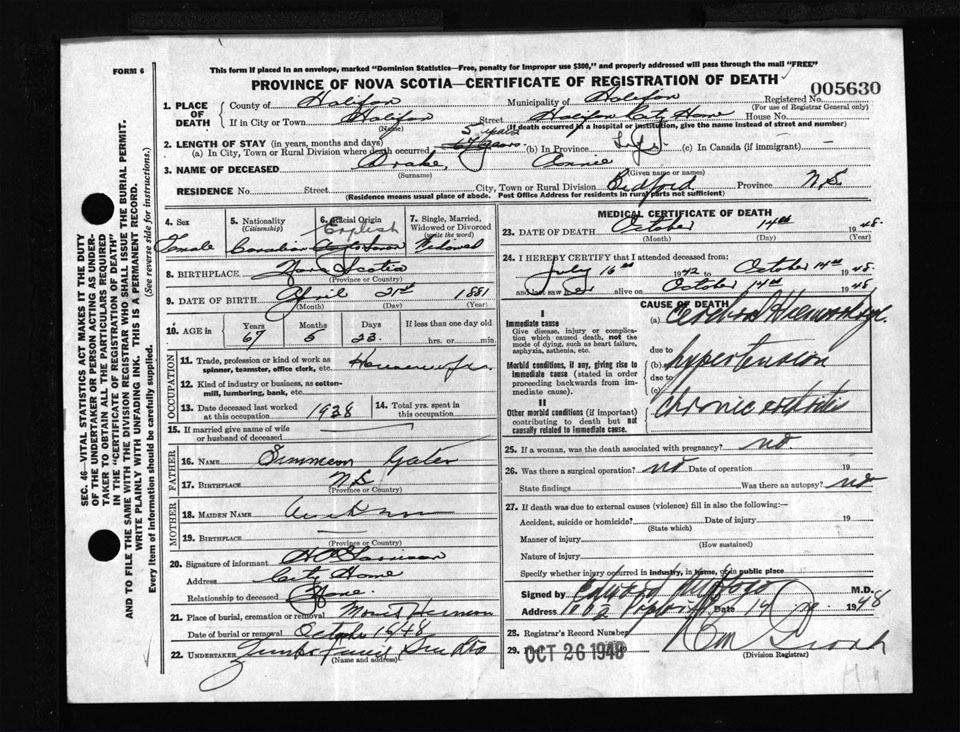 FORM 6
This form if placed in an envelope, marked "Dominion Statistics—Free, penalty for improper use $300," and properly addressed will pass through the mail "FREE"
PROVINCE OF NOVA SCOTIA—CERTIFICATE OF REGISTRATION OF DEATH
005630
1. PLACE OF DEATH
County of Halifax Municipality of Halifax Registered No.
(For use of Registrar General only)
If in City or Town Halifax Street Halifax City Home House No.
(Name) (If death occurred in a hospital or institution, give the name instead of street and number)
2. LENGTH OF STAY (in years, months and days)
(a) In City, Town or Rural Division where death occurred 5 years (b) In Province Life (c) In Canada (if immigrant) —
3. NAME OF DECEASED Drake, Annie
(Surname) (Given name or names)
RESIDENCE No. Street City, Town or Rural Division Bedford Province N.S
(Residence means usual place of abode. Post Office Address for residents in rural parts not sufficient)
4. Sex Female
5. Nationality (Citizenship) Canadian
6. Racial Origin English
7. Single, Married, Widowed or Divorced (write the word) Widowed
8. BIRTHPLACE Nova Scotia
(Province or Country)
9. DATE OF BIRTH April 21st 1881
(Month) (Day) (Year)
10. AGE in Years 67 Months 5 Days 23 If less than one day old
hrs. or min.
OCCUPATION
11. Trade, profession or kind of work as spinner, teamster, office clerk, etc.
12. Kind of industry or business, as cotton-mill, lumbering, bank, etc.
13. Date deceased last worked at this occupation 1938
14. Total yrs. spent in this occupation
15. If married give name of wife or husband of deceased
FATHER
16. NAME
17. BIRTHPLACE N.S
(Province or Country)
MOTHER
18. MAIDEN NAME Unknown
19. BIRTHPLACE
(Province or Country)
20. Signature of informant
Address City Home
Relationship to deceased None.
21. Place of burial, cremation or removal Mount Hermon
Date of burial or removal October 16/48
22. UNDERTAKER
(Name and address)
MEDICAL CERTIFICATE OF DEATH
23. DATE OF DEATH October 14th 1948.
(Month) (Day)
24. I HEREBY CERTIFY that I attended deceased from:
July 16th 1942 to October 14th 1948.
and last saw her alive on October 14th 1948
CAUSE OF DEATH
I
Immediate cause
Give disease, injury or complication which caused death, not the mode of dying, such as heart failure, asphyxia, asthenia, etc.
Morbid conditions, if any, giving rise to immediate cause (stated in order proceeding backwards from immediate cause).
II
Other morbid conditions (if important) contributing to death but not causally related to immediate cause.
(a) Cerebral Haemorrhage
due to
(b) hypertension
due to
(c)
Chronic
25. If a woman, was the death associated with pregnancy? no
26. Was there a surgical operation? no Date of operation 19
State findings Was there an autopsy? no
27. If death was due to external causes (violence) fill in also the following:—
Accident, suicide or homicide? Date of injury 19
(State which)
Manner of injury
(How sustained)
Nature of injury
Specify whether injury occurred in industry, in home, or in public place
Signed by Edward M.D.
Address Date 14 1948
28. Registrar's Record Number
29. OCT 26 1948
(Division Registrar)
SEC. 46—VITAL STATISTICS ACT MAKES IT THE DUTY
OF THE UNDERTAKER OR PERSON ACTING AS UNDER-
TAKER TO OBTAIN ALL THE PARTICULARS REQUIRED
IN THE "CERTIFICATE OF REGISTRATION OF DEATH"
AND TO FILE THE SAME WITH THE DIVISION REGISTRAR WHO SHALL ISSUE THE BURIAL PERMIT.
WRITE PLAINLY WITH UNFADING INK. THIS IS A PERMANENT RECORD.
Every item of information should be carefully supplied. (See reverse side for instructions.)